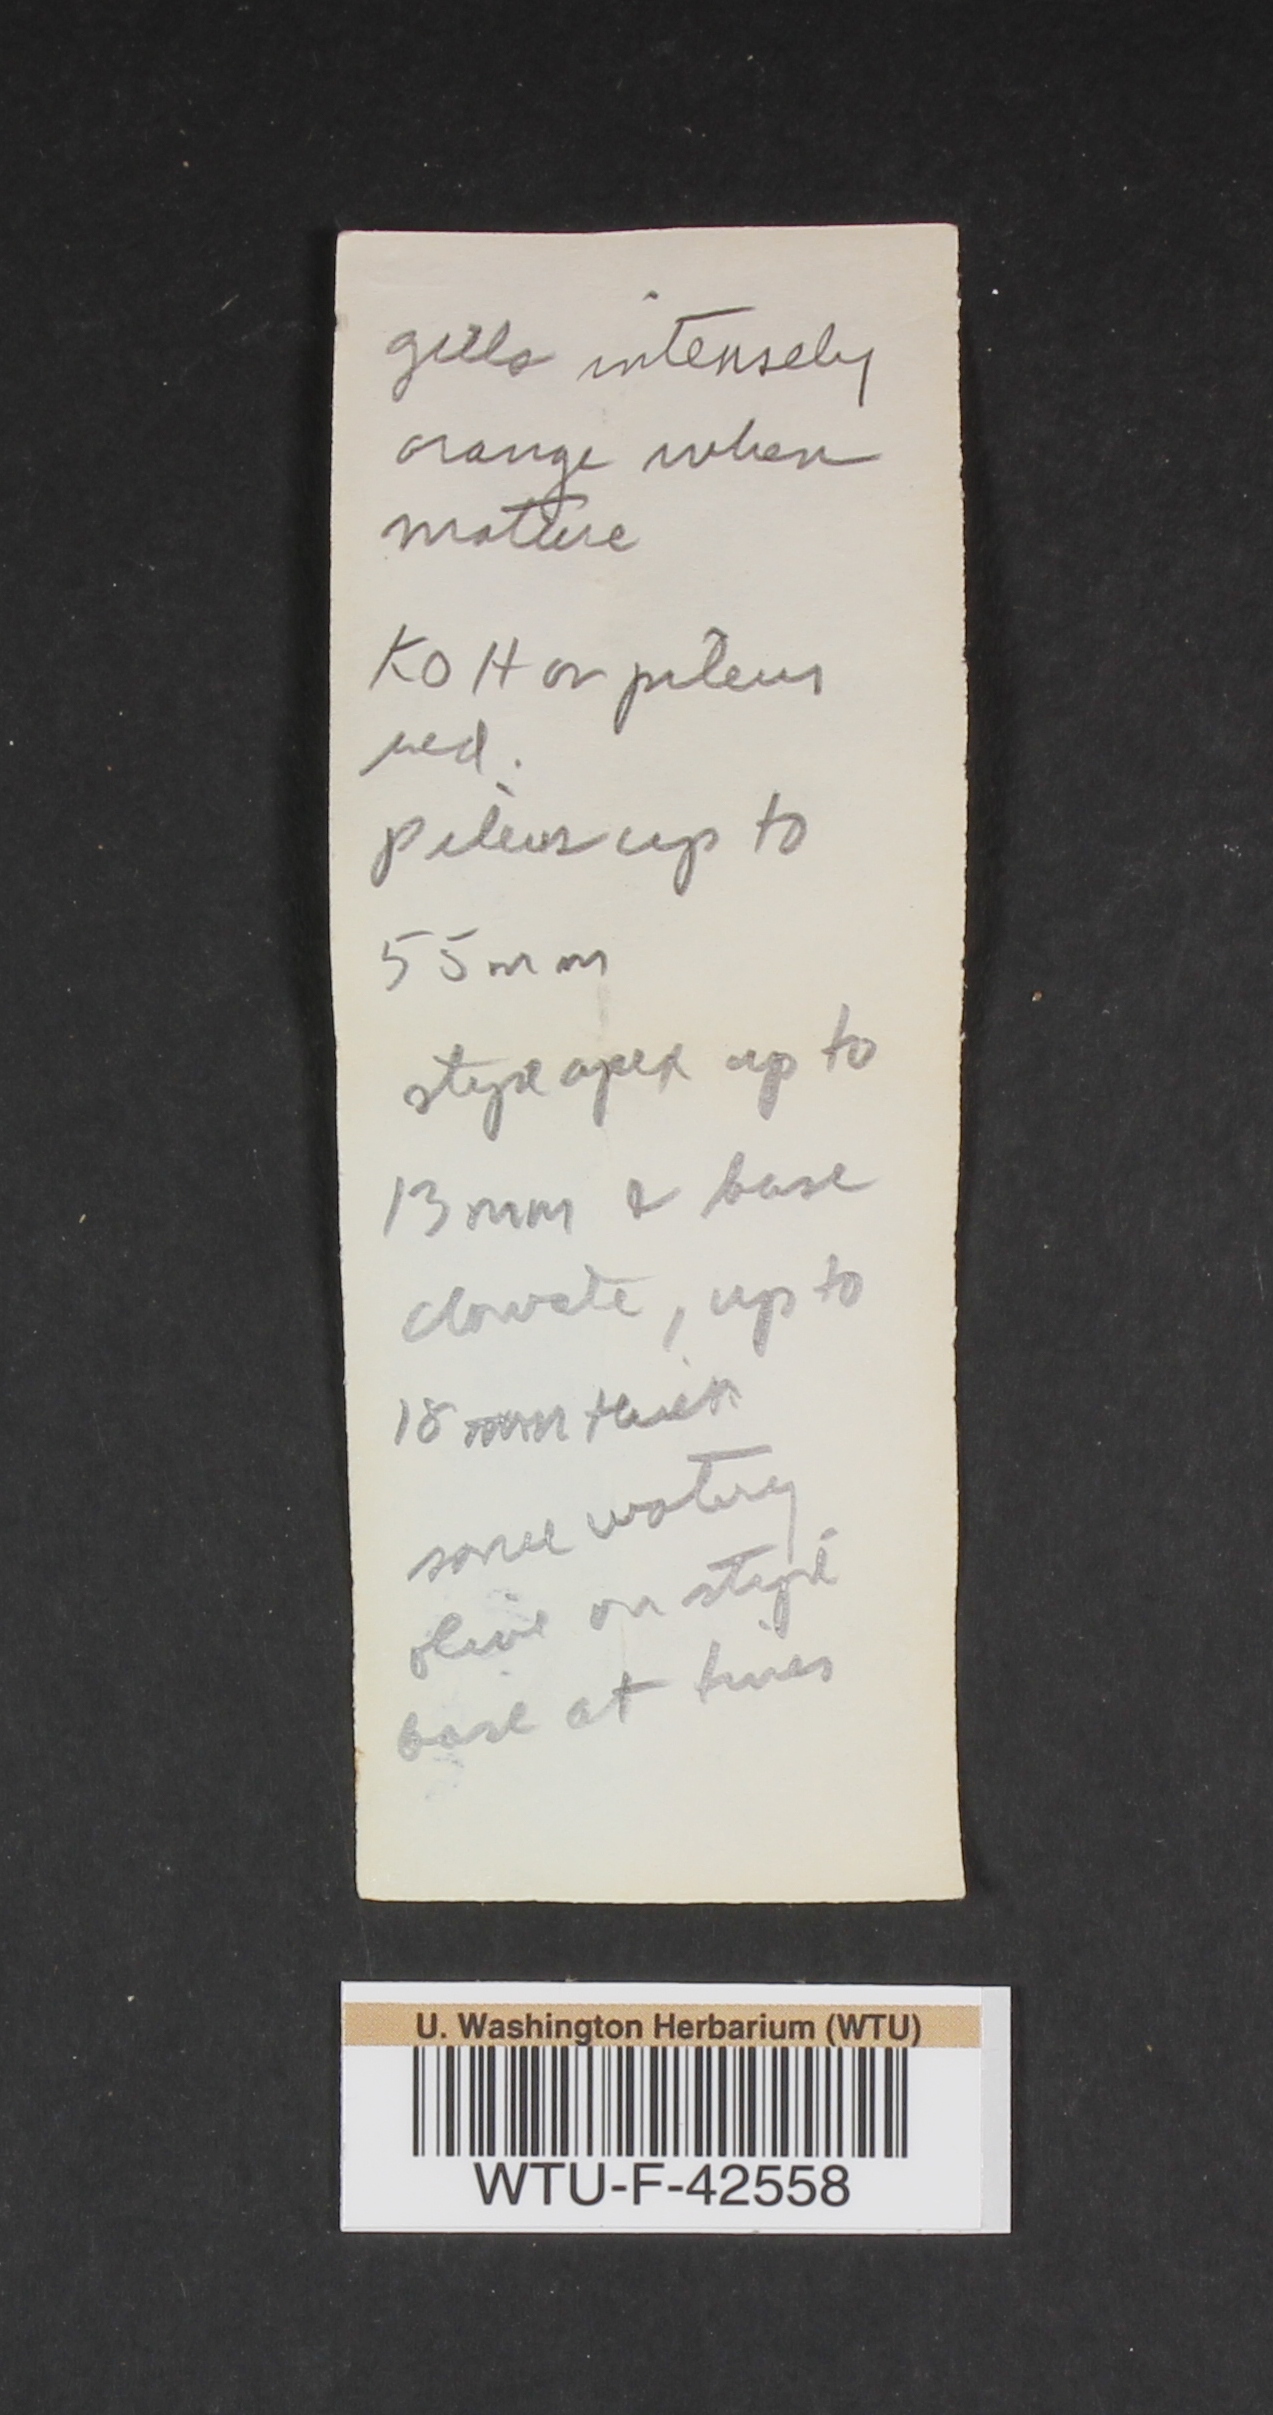 gills intensely
orange when
mature
KOH on pileus
red.
pileus up to
55mm
stipe apex up to
13mm & base
clavate, up to
18mm thick
some watery
olive on stipe
base at times
U. Washington Herbarium (WTU)
WTU-F-42558